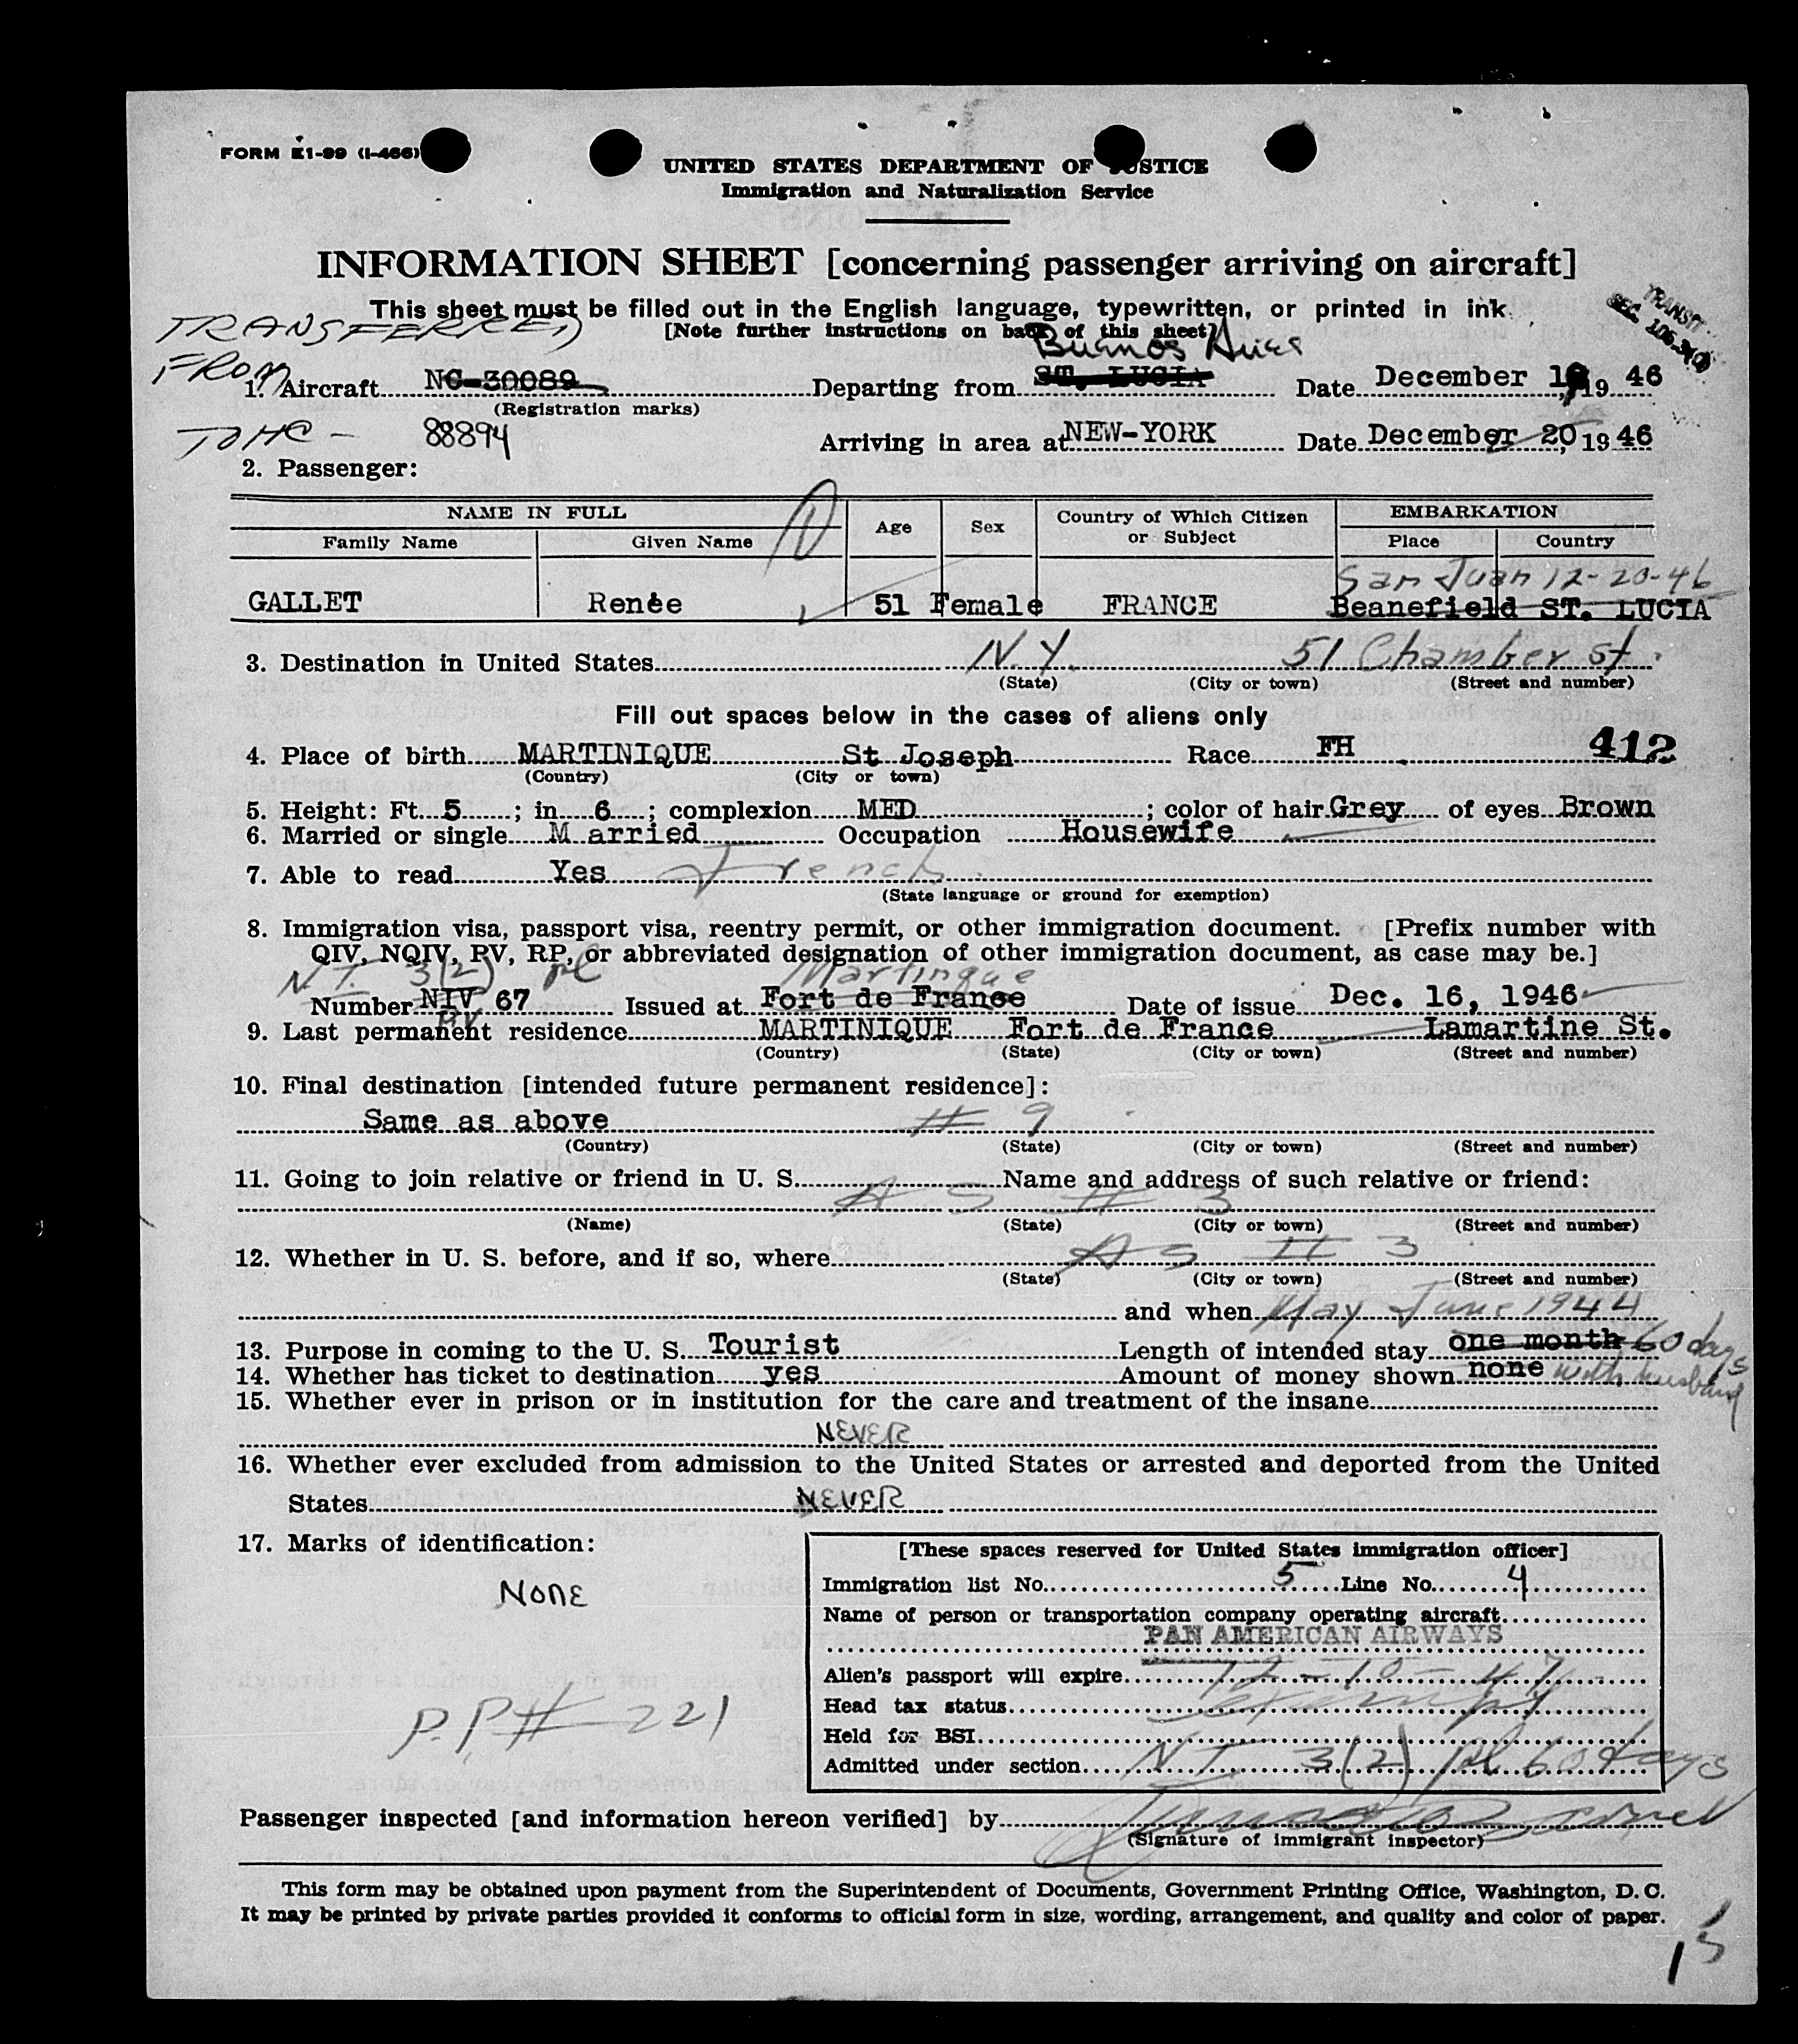 FORM I-99 (I-466)
UNITED STATES DEPARTMENT OF JUSTICE
Immigration and Naturalization Service
INFORMATION SHEET [concerning passenger arriving on aircraft]
This sheet must be filled out in the English language, typewritten, or printed in ink
[Note further instructions on back of this sheet]
TRANSIT
SEC.
TRANSFERRED
FROM
Buenos Aires
1. Aircraft NC-30089 Departing from ST. LUCIA Date December 19 46
(Registration marks)
TO NC- 88894
Arriving in area at NEW-YORK Date December 20, 19 46
2. Passenger:
NAME IN FULL Age Sex Country of Which Citizen or Subject EMBARKATION
Family Name Given Name Place Country
San Juan 12-20-46
GALLET Renée 51 Female FRANCE Beanefield ST. LUCIA
3. Destination in United States N.Y. 51 Chamber St.
(State) (City or town) (Street and number)
Fill out spaces below in the cases of aliens only
4. Place of birth MARTINIQUE St Joseph Race FH 412
(Country) (City or town)
5. Height: Ft. 5; in. 6; complexion MED; color of hair Grey of eyes Brown
6. Married or single M arried Occupation Housewife
7. Able to read Yes French
(State language or ground for exemption)
8. Immigration visa, passport visa, reentry permit, or other immigration document. [Prefix number with
QIV, NQIV, PV, RP, or abbreviated designation of other immigration document, as case may be.]
N.T. 3(2) pl Martinque
Number NIV 67 Issued at Fort de France Date of issue Dec. 16, 1946
PV
9. Last permanent residence MARTINIQUE Fort de France Lamartine St.
(Country) (State) (City or town) (Street and number)
10. Final destination [intended future permanent residence]:
Same as above # 9
(Country) (State) (City or town) (Street and number)
11. Going to join relative or friend in U. S. Name and address of such relative or friend:
AS # 3
(Name) (State) (City or town) (Street and number)
12. Whether in U. S. before, and if so, where AS # 3
(State) (City or town) (Street and number)
and when May June 1944
13. Purpose in coming to the U. S. Tourist Length of intended stay one month 60 days
14. Whether has ticket to destination yes Amount of money shown none with husband
15. Whether ever in prison or in institution for the care and treatment of the insane
NEVER
16. Whether ever excluded from admission to the United States or arrested and deported from the United
States NEVER
17. Marks of identification:
NONE
P.P# 221
[These spaces reserved for United States immigration officer]
Immigration list No. 5 Line No. 4
Name of person or transportation company operating aircraft
PAN AMERICAN AIRWAYS
Alien's passport will expire 12-10-47
Head tax status Exempt
Held for BSI
Admitted under section N T 3(2) pl 60 days
Passenger inspected [and information hereon verified] by
(Signature of immigrant inspector)
This form may be obtained upon payment from the Superintendent of Documents, Government Printing Office, Washington, D. C.
It may be printed by private parties provided it conforms to official form in size, wording, arrangement, and quality and color of paper.